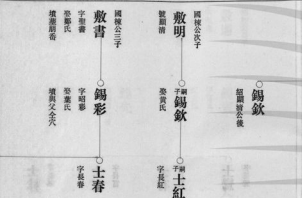 錫欽
紹顯清公後
國棟公次子
敷明
號顯清
嗣子錫欽
娶黃氏
嗣子士紅
字長紅
國棟公三子
敷書
字聖書
娶鄭氏
墳蓮萠番
錫彩
字昭彩
娶葉氏
墳與父仝穴
士春
字長春